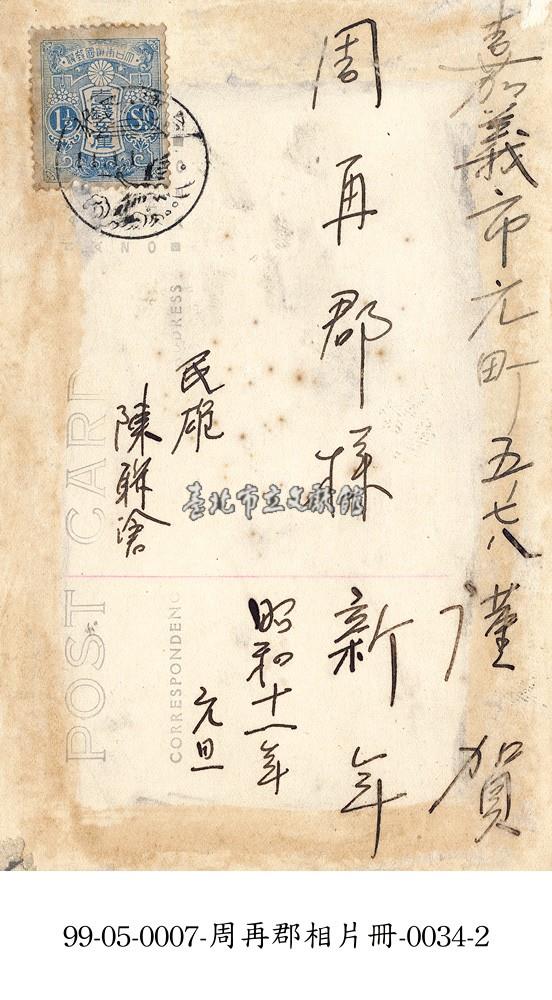 嘉義市元町五ノ七八
周再郡様
謹賀
新年
昭和十一年
元旦
民雄
陳聯滄
大日本帝國郵便
壹錢五厘
1½ Sn
POST CARD
CORRESPONDENC
DRESS
臺北市立文獻館
99-05-0007-周再郡相片冊-0034-2